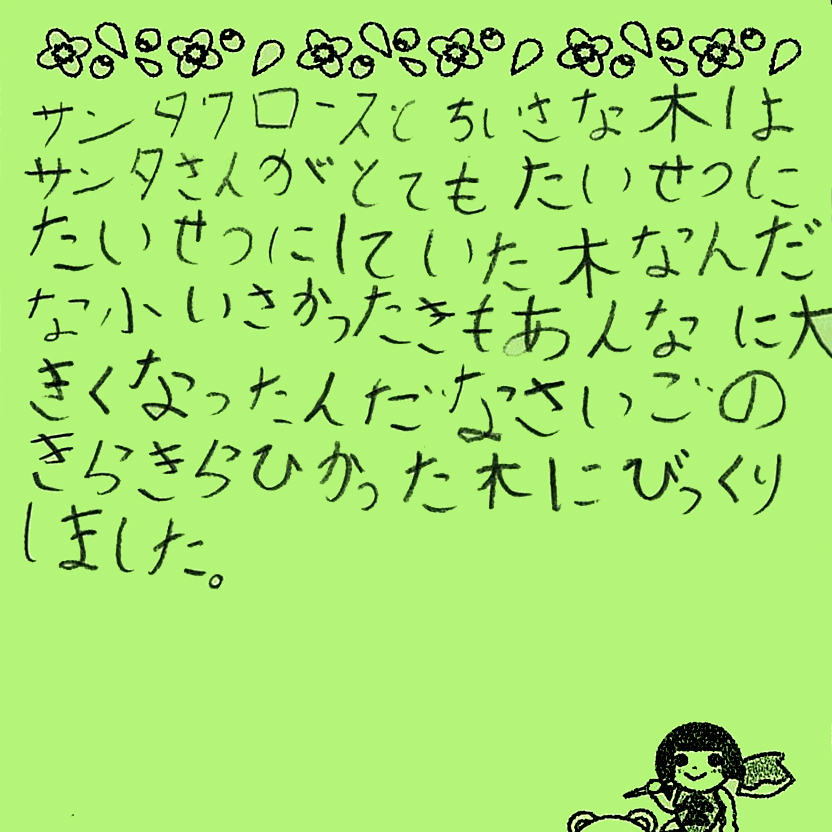 サンタクロースとちいさな木は
サンタさんがとてもたいせつに
たいせつにしていた木なんだ
な小いさかったきもあんなに大
きくなったんだなさいごの
きらきらひかった木にびっくり
しました。